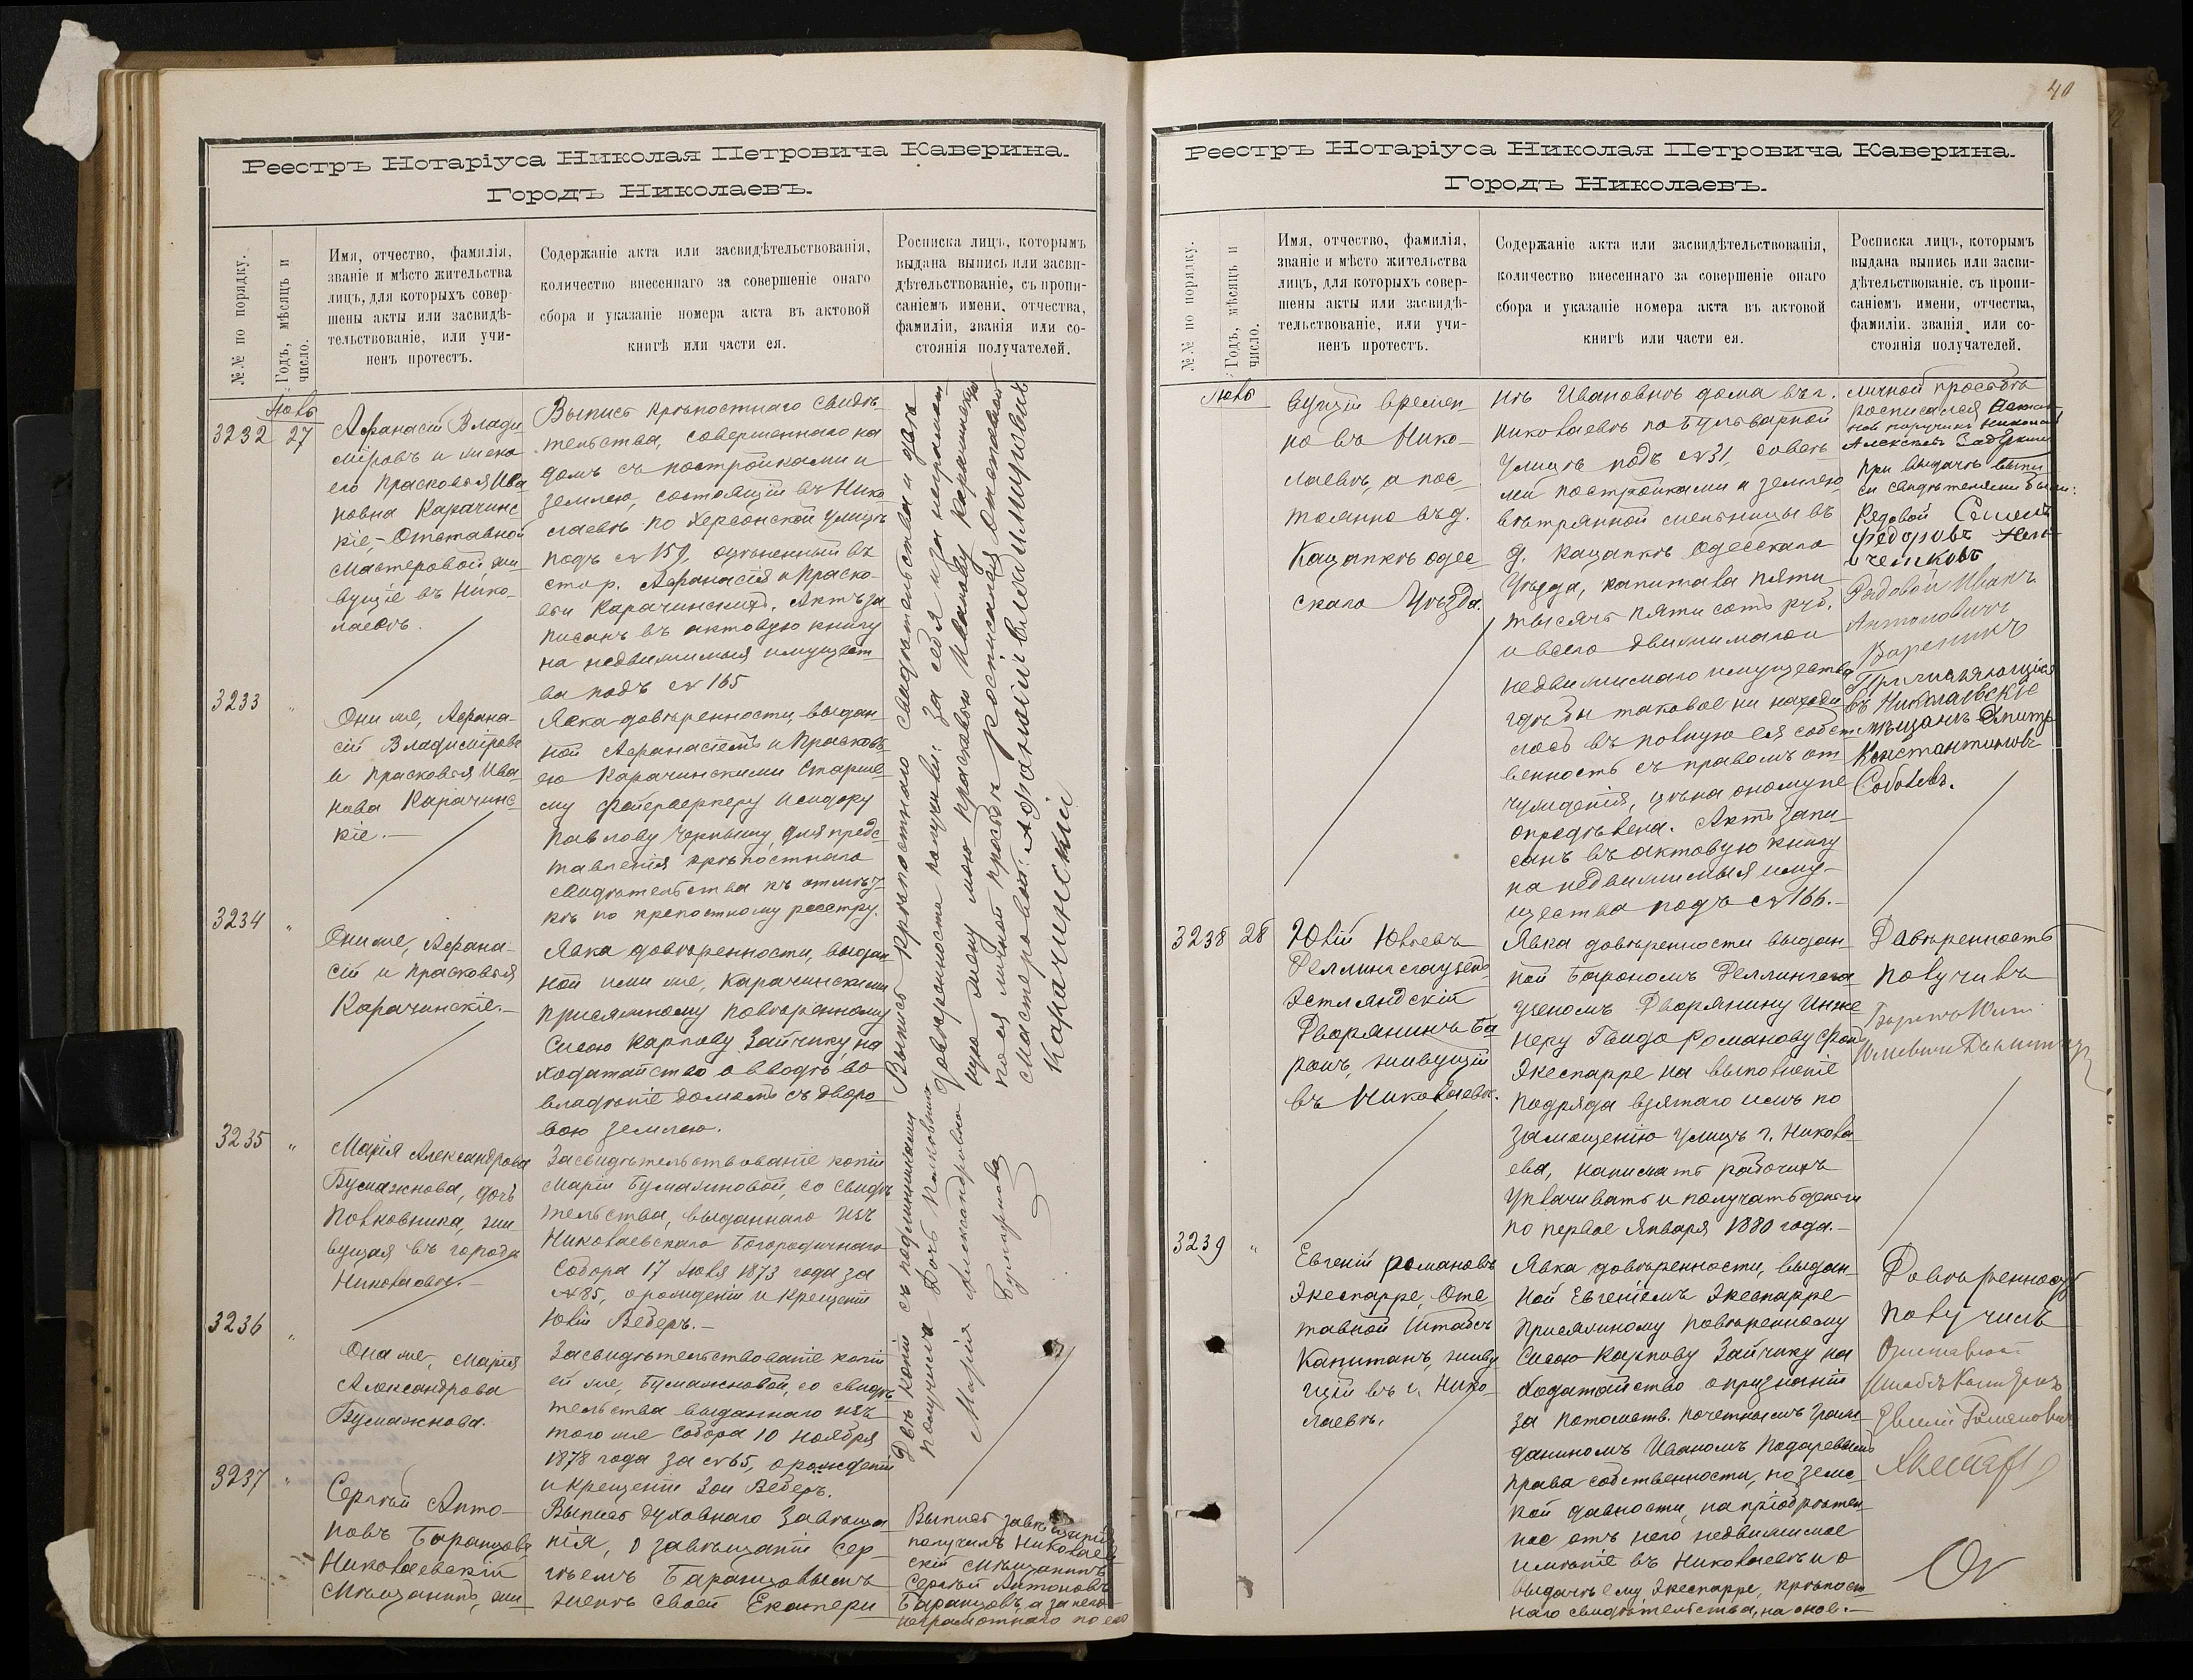 Реестръ Нотаріуса Николая Петровича Каверина.
Городъ Николаевъ.
№№ по порядку.
Годъ, мѣсяцъ и
число.
Имя, отчество, фамилія,
званіе и мѣсто жительства
лицъ, для которыхъ совер-
шены акты или засвидѣ-
тельствованіе, или учи-
ненъ протестъ.
Содержаніе акта или засвидѣтельствованія,
количество внесеннаго за совершеніе онаго
сбора и указаніе номера акта въ актовой
книгѣ или части ея.
Росписка лицъ, которымъ
выдана выпись или засви-
дѣтельствованіе, съ пропи-
саніемъ имени, отчества,
фамиліи, званія или со-
стоянія получателей.
Іюль
3232 27
Афанасій Влади-
міровъ и жена
его Прасковья Ива
новна Карачинс
кіе, Отставной
Мастеровой жи
вущіе въ Нико-
лаевѣ.
Выпись крѣпостнаго свидѣ-
тельства, совершеннаго на
домъ съ постройками и
землею, состоящій въ Нико
лаевѣ по Херсонской улицѣ
подъ № 159, оцѣненный въ
стор. Афанасія и Праско-
вьи Карачинскихъ. Актъ за
писанъ въ актовую книгу
на недвижимыя имущест-
ва подъ № 165
3233 "
Они же, Афана-
сій Владиміровъ
и Прасковья Ива
нова Карачинс
кіе.—
Явка довѣренности, выдан-
ной Афанасіемъ и Прасковь-
ею Карачинскими Старше
му фейерверкеру Исидору
Павлову Черныму, для предс
тавленія крѣпостнаго
свидѣтельства къ отмѣт-
кѣ по крепостному реестру.
3234 "
Они же, Афана-
сій и Прасковья
Карачинскіе.—
Явка довѣренности, выдан
ной ими же, Карачинскими
присяжному повѣренному
Сысою Карпову Зайчику, на
ходатайство о вводѣ во
владѣніе домомъ съ дворо-
вою землею.
3235 "
Марія Александрова
Бумажнова, дочь
Полковника, жи
вущая въ городѣ
Николаевѣ.—
Засвидѣтельствованіе копіи
Маріи Бумажновой, со свидѣ
тельства, выданнаго изъ
Николаевскаго Богородичнаго
Собора 17 Іюля 1873 года за
№ 85, о рожденіи и крещеніи
Юліи Веберъ.—
3236 "
Она же, Марія
Александрова
Бумажнова.
Засвидѣтельствованіе копіи
ей же, Бумажновой, со свидѣ
тельства выданнаго изъ
того же Собора 10 Ноября
1878 года за № 65, о рожденіи
и крещеніи Зои Веберъ.
3237 "
Сергѣй Анто-
новъ Баранцовъ,
Николаевскій
Мѣщанинъ, жи
Выпись духовнаго завѣща
нія, о завѣщаніи Сер-
гѣемъ Баранцовымъ
женѣ своей Екатери
Выпись крѣпостнаго свидѣтельства и двѣ
довѣренности получили: За себя и за неграмот
ную жену мою Прасковью Иванову Карачинскую
по ея личной просьбѣ росписался отставной
Мастеровой: Афанасій Владиміровичъ
Карачинскій
Двѣ копіи съ подлинниками
получила Дочь Полковника
Марія Александровна
Бумажнова
Выпись завѣщанія
получилъ Николаев
скій мѣщанинъ
Сергѣй Антоновъ
Баранцовъ, а за него
неграмотнаго по его
40
Реестръ Нотаріуса Николая Петровича Каверина.
Городъ Николаевъ.
№№ по порядку.
Годъ, мѣсяцъ и
число.
Имя, отчество, фамилія,
званіе и мѣсто жительства
лицъ, для которыхъ совер-
шены акты или засвидѣ-
тельствованіе, или учи-
ненъ протестъ.
Содержаніе акта или засвидѣтельствованія,
количество внесеннаго за совершеніе онаго
сбора и указаніе номера акта въ актовой
книгѣ или части ея.
Росписка лицъ, которымъ
выдана выпись или засви-
дѣтельствованіе, съ пропи-
саніемъ имени, отчества,
фамиліи, званія или со-
стоянія получателей.
Іюль
вущій времен-
но въ Нико-
лаевѣ, а пос-
тоянно въ д.
Кацапкѣ Одес
скаго Уѣзда.
нѣ Ивановнѣ дома въ г.
Николаевѣ по Бульварной
улицѣ подъ № 31, со всѣ
ми постройками и землею
вѣтрянной мельницы въ
д. Кацапкѣ Одесскаго
Уѣзда, капитала пяти
тысячъ пяти сотъ руб.
и всего движимаго и
недвижимаго имущества
гдѣ бы таковое ни находи
лось въ полную ея собст
венность съ правомъ от
чужденія, цѣна оному не
опредѣлена. Актъ запи
санъ въ актовую книгу
на недвижимыя иму-
щества подъ № 166.—
личной просьбѣ
росписался
поручикъ Николай
Алексѣевъ
При выдачѣ выпи
си свидѣтелями были:
Рядовой Семенъ
Федоровъ
Рядовой Иванъ
Антоновичъ
Вареникъ
Причисляющійся
въ Николаевскіе
мѣщане Дмитр
Константиновъ
Соболевъ.
3238 28
Юлій Юльевъ
Деллингсгаузенъ
Эстляндскій
Дворянинъ Ба
ронъ, живущій
въ Николаевѣ.
Явка довѣренности выдан-
ной Барономъ Деллингсга
узеномъ Дворянину Инже
неру Гвидо Романову фонъ
Экеспарре на выполненіе
подряда взятаго имъ по
замощенію улицъ г. Никола
ева, нанимать рабочихъ
уплачивать и получать деньги
по первое Января 1880 года.—
Довѣренность
получилъ
Баронъ Юлій
3239 "
Евгеній Романовъ
Экеспарре, Отс
тавной Штабсъ
Капитанъ, живу
щій въ г. Нико-
лаевѣ.
Явка довѣренности, выдан-
ной Евгеніемъ Экеспарре
Присяжному повѣренному
Сысою Карпову Зайчику на
ходатайство о признаніи
за потомств. почетнымъ граж
даниномъ Иваномъ Подаревымъ
права собственности, по земс-
кой давности, на пріобрѣтен-
ное отъ него недвижимое
имѣніе въ Николаевѣ и о
выдачѣ ему Экеспарре, крѣпост-
наго свидѣтельства, на оное.—
Довѣренность
получилъ
Отставной
Штабсъ Капитанъ
Евгеній Романовичъ